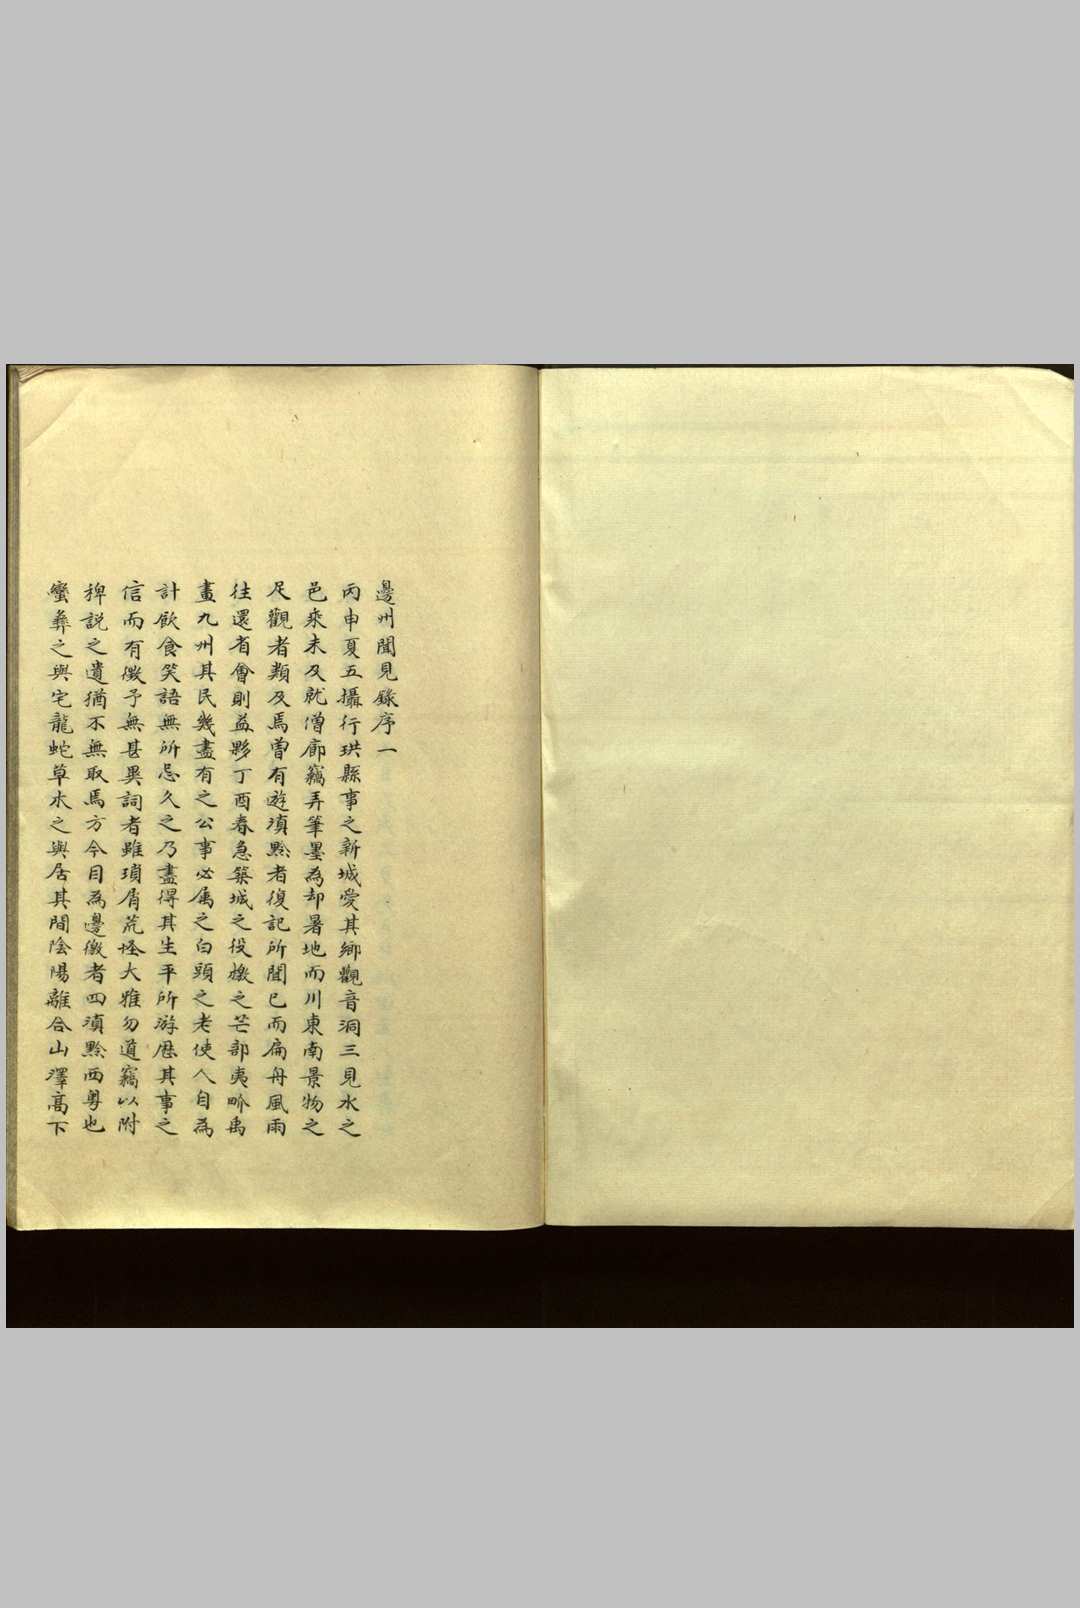 邊州聞見錄序一
丙申夏五攝行珙縣事之新城愛其鄉觀音洞三見水之
邑乘未及就僧廊竊弄筆墨為却暑地而川東南景物之
足觀者類及焉曾有遊滇黔者復記所聞已而扁舟風雨
往還省會則益夥丁酉春急築城之役檄之芒部夷畍禹
畫九州其民幾盡有之公事必屬之白頭之老使人自為
計飲食笑語無所忌久之乃盡得其生平所游歷其事之
信而有徵予無甚異詞者雖瑣屑荒怪大雅勿道竊以附
稗説之遺猶不無取焉方今目為邊徼者四滇黔西粤也
蠻彝之與宅龍蛇草木之與居其間陰陽離合山澤高下